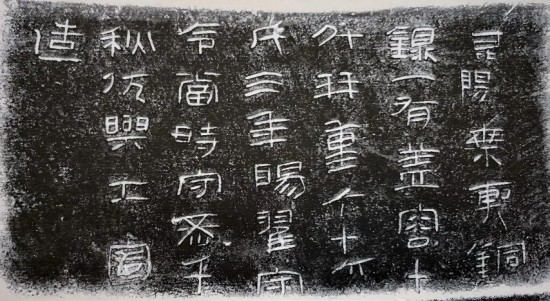 昆陽乘輿銅
鼎一有蓋容十
斗并重六十六
斤三年陽翟守
令當時守丞千
秋佐樂工國
造